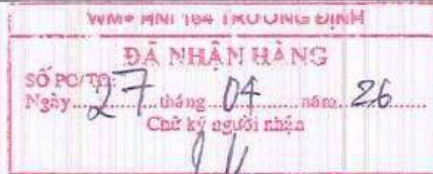 WM+ HNI 164 TRƯƠNG ĐỊNH
ĐÃ NHẬN HÀNG
SỐ PC/TO:
Ngày 27 tháng 04 năm 26
Chữ ký người nhận